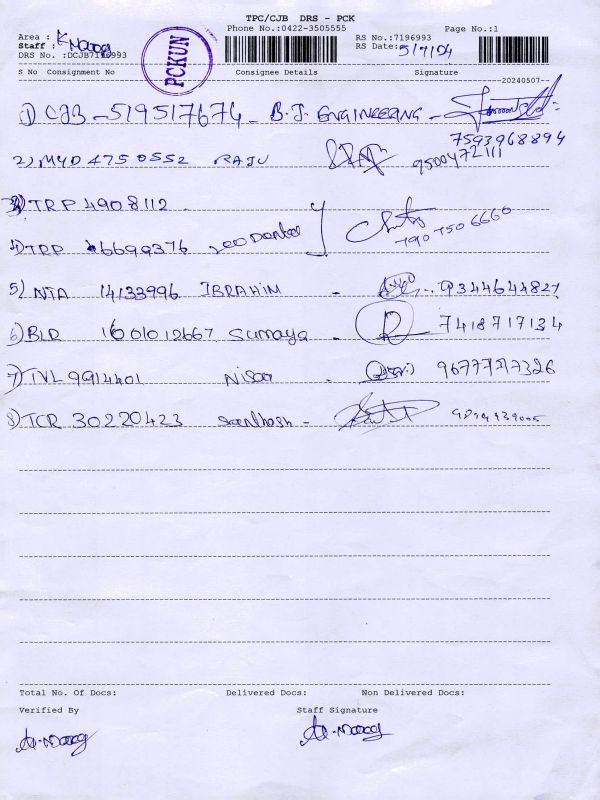 TPC/CJB DRS - PCK
Phone No.:0422-3505555 Page No.:1
Area : RS No.:7196993
Staff : RS Date: 5/7/04
DRS No. :DCJB7196993
PCKUN
S No Consignment No Consignee Details Signature
20240507--
1) CJB - 519517674 - B.J. ENGINEERING -
7593968894
2) MYD 4750552 RAJU 9500472111
3) TRP 4908112
4) TRP 6699376 790 750 6660
5) NTA 14133996 IBRAHIM - 9344644827
6) BLR 16001012667 Sumaya - 7418717134
7) TVL 9914401 Nisar - 9677727326
8) TCR 30220423 Santhosh -
Total No. Of Docs: Delivered Docs: Non Delivered Docs:
Verified By Staff Signature